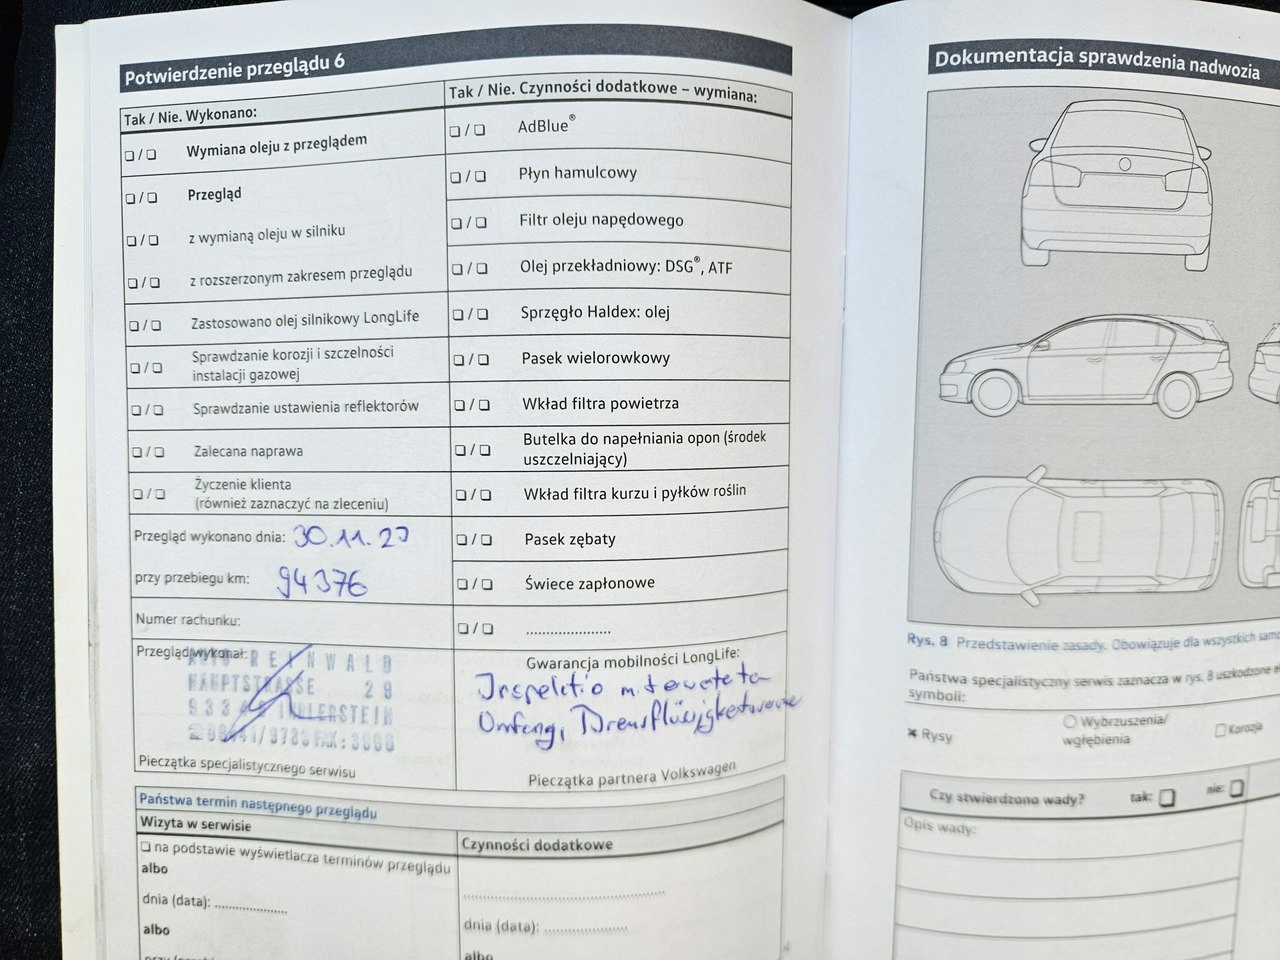 Potwierdzenie przeglądu 6
Tak / Nie. Wykonano:
❏ / ❏ Wymiana oleju z przeglądem
❏ / ❏ Przegląd
❏ / ❏ z wymianą oleju w silniku
❏ / ❏ z rozszerzonym zakresem przeglądu
❏ / ❏ Zastosowano olej silnikowy LongLife
❏ / ❏ Sprawdzanie korozji i szczelności
instalacji gazowej
❏ / ❏ Sprawdzanie ustawienia reflektorów
❏ / ❏ Zalecana naprawa
❏ / ❏ Życzenie klienta
(również zaznaczyć na zleceniu)
Przegląd wykonano dnia: 30.11.23
przy przebiegu km: 94376
Numer rachunku:
Przegląd wykonał:
REINWALD
HAUPTSTRASSE 29
IHRLERSTEIN
Pieczątka specjalistycznego serwisu
Tak / Nie. Czynności dodatkowe – wymiana:
❏ / ❏ AdBlue®
❏ / ❏ Płyn hamulcowy
❏ / ❏ Filtr oleju napędowego
❏ / ❏ Olej przekładniowy: DSG®, ATF
❏ / ❏ Sprzęgło Haldex: olej
❏ / ❏ Pasek wielorowkowy
❏ / ❏ Wkład filtra powietrza
❏ / ❏ Butelka do napełniania opon (środek
uszczelniający)
❏ / ❏ Wkład filtra kurzu i pyłków roślin
❏ / ❏ Pasek zębaty
❏ / ❏ Świece zapłonowe
❏ / ❏ .....................
Gwarancja mobilności LongLife:
Umfang,
Pieczątka partnera Volkswagen
Państwa termin następnego przeglądu
Wizyta w serwisie
❏ na podstawie wyświetlacza terminów przeglądu
albo
dnia (data): ..................
albo
Czynności dodatkowe
dnia (data): .....................
albo
Dokumentacja sprawdzenia nadwozia
Rys. 8 Przedstawienie zasady. Obowiązuje dla wszystkich
Państwa specjalistyczny serwis zaznacza w rys. 8 uszkodzone
symboli:
✖ Rysy
○ Wybrzuszenia/
wgłębienia
❏ Korozja
Czy stwierdzono wady? tak: ❏ nie: ❏
Opis wady: